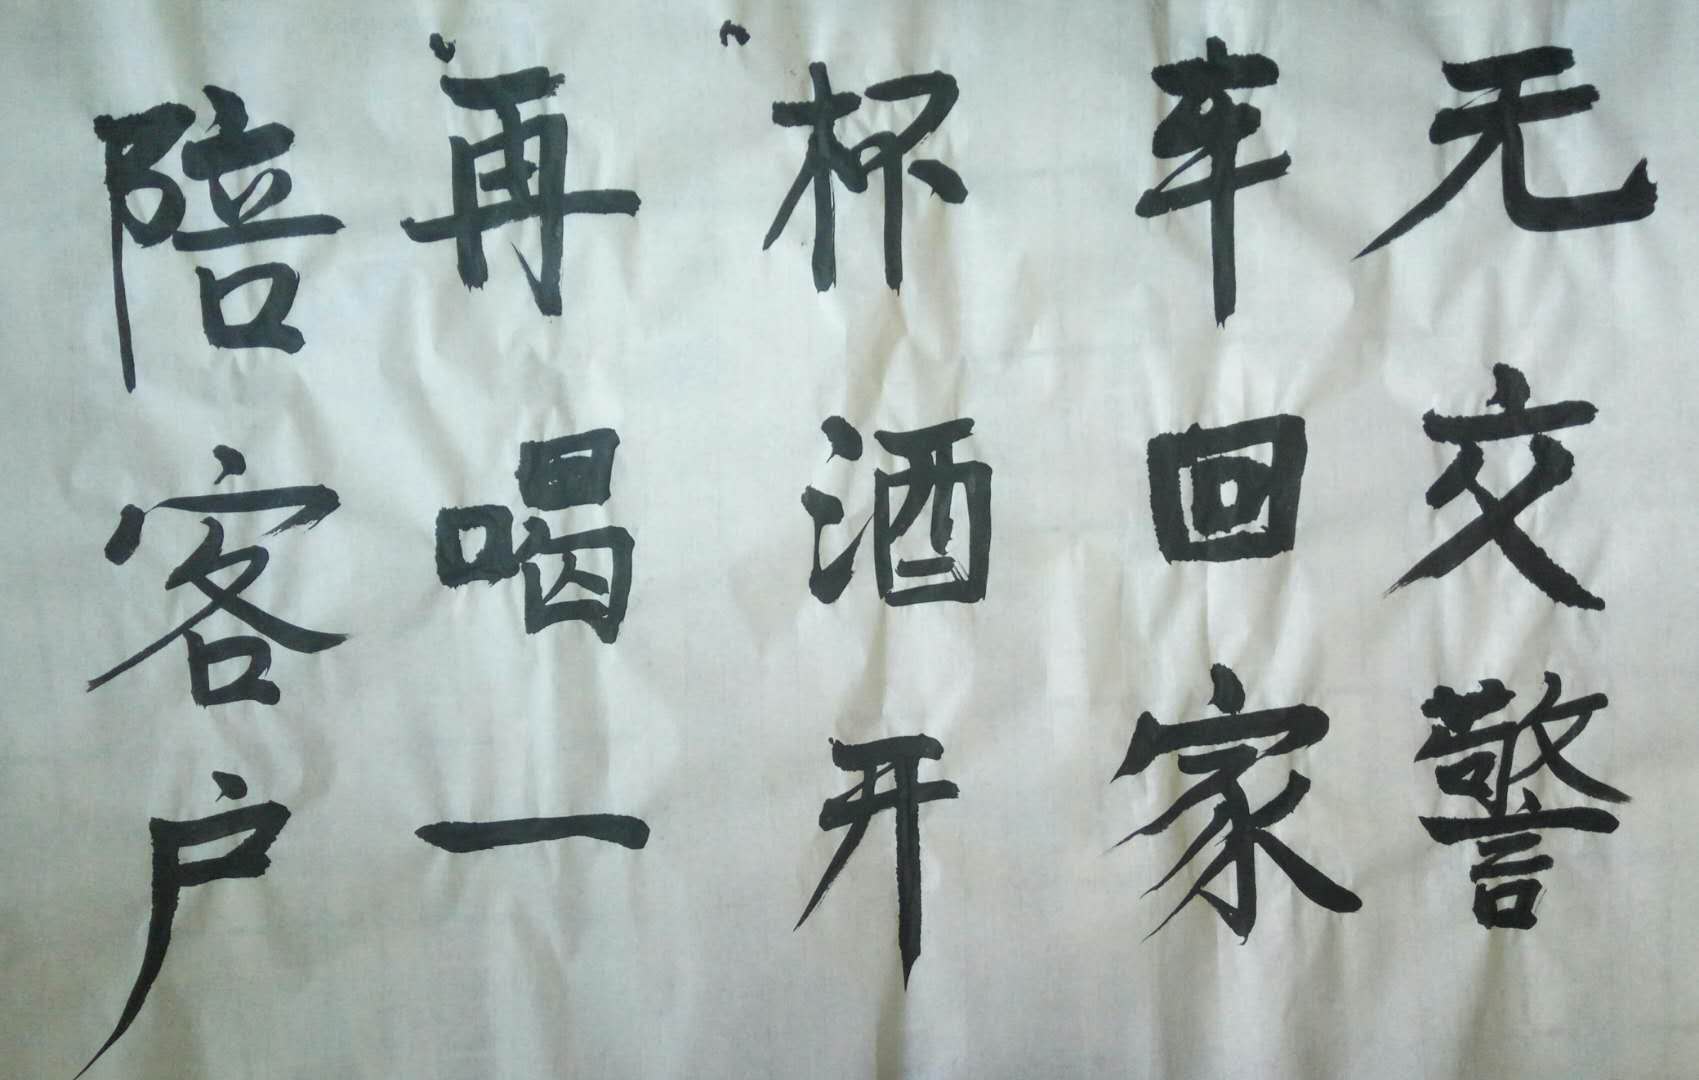 陪客户
再喝一
杯酒开
车回家
无交警